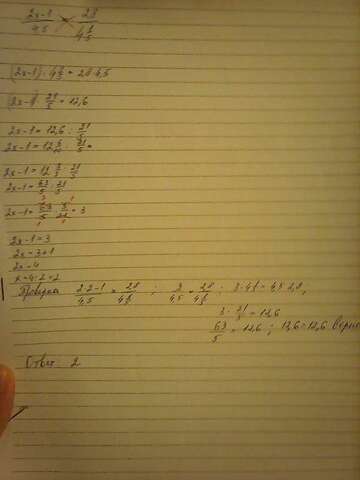 (2x-1)/4,5 = 2,8/4 1/5
(2x-1) · 4 1/5 = 2,8 · 4,5
(2x-1) · 21/5 = 12,6
2x-1 = 12,6 : 21/5
2x-1 = 12 6/10 : 21/5 =
2x-1 = 12 3/5 : 21/5
2x-1 = 63/5 : 21/5
2x-1 = 63/5 · 5/21 = 3
2x-1 = 3
2x = 3+1
2x = 4
x = 4:2 = 2
Проверка (2·2-1)/4,5 = 2,8/4 1/5 ; 3/4,5 = 2,8/4 1/5 ; 3 · 4 1/5 = 4,5 · 2,8 ;
3 · 21/5 = 12,6
63/5 = 12,6 ; 12,6 = 12,6 верно
Ответ: 2